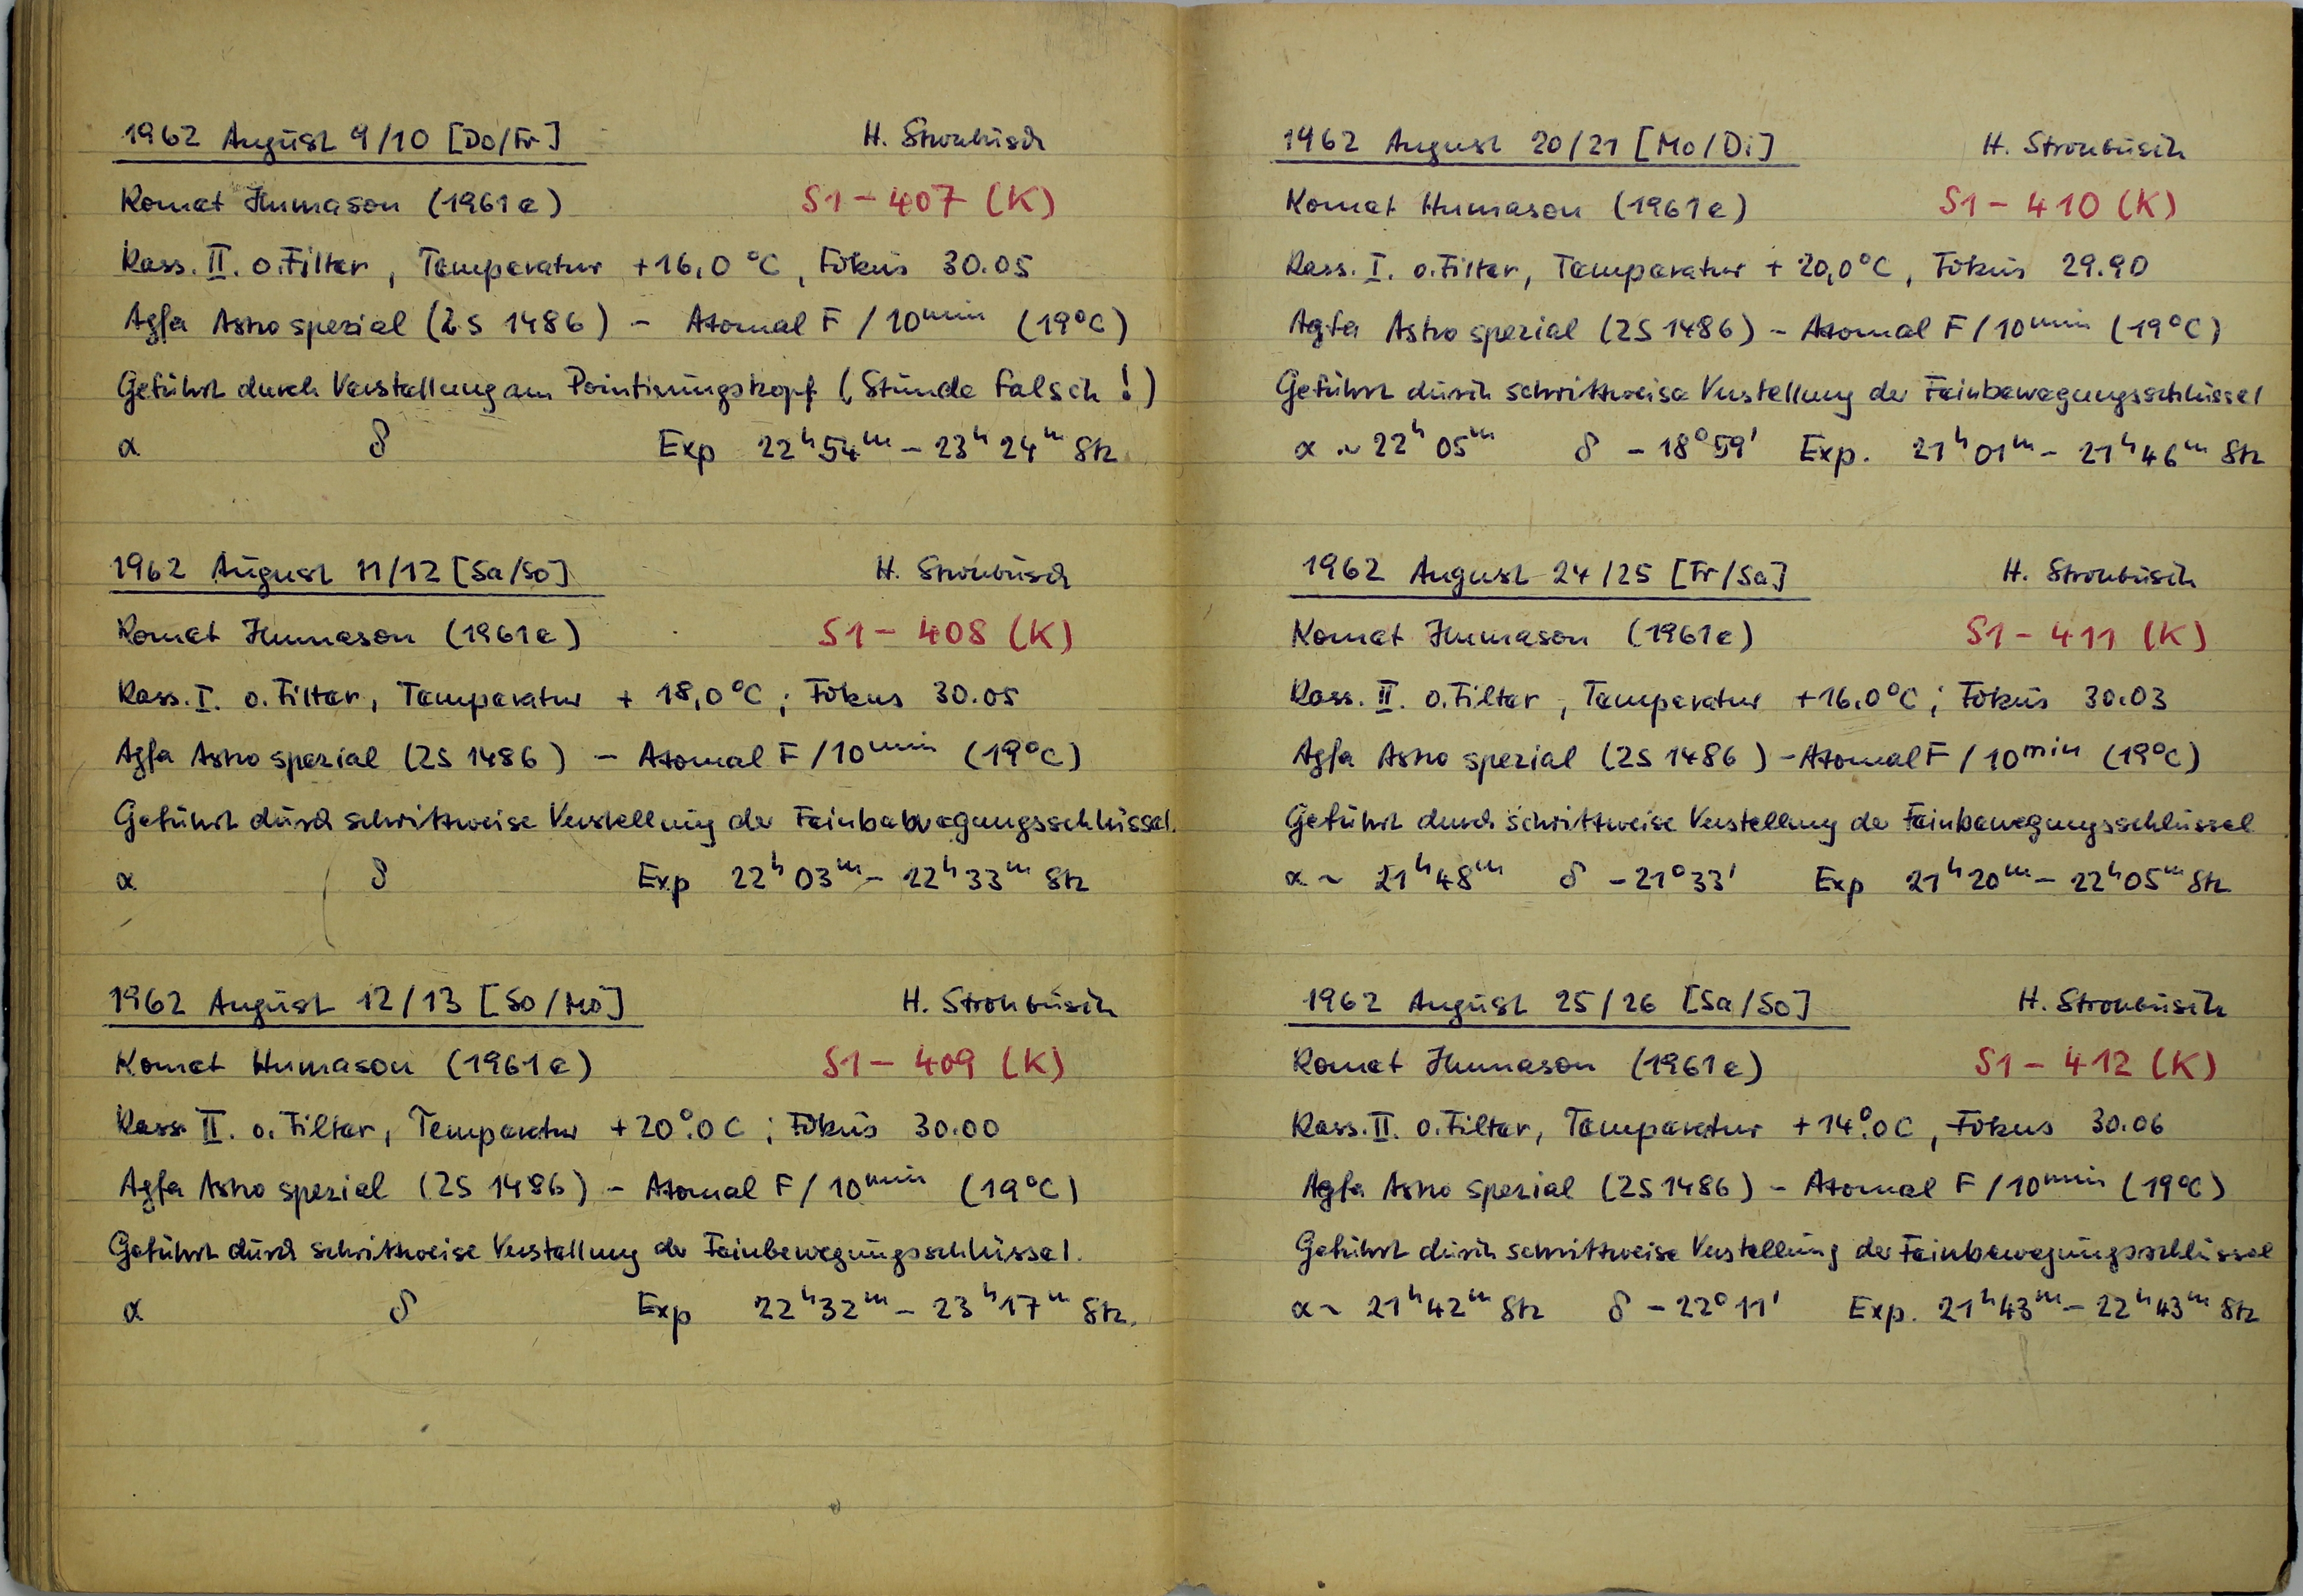 1962 August 9/10 [Do/Fr] H. Strohbusch
Komet Humason (1961e) S1 – 407 (K)
Kass. II. o. Filter, Temperatur +16,0 °C, Fokus 30.05
Agfa Astro spezial (2S 1486) – Atomal F / 10min (19°C)
Geführt durch Verstellung am Pointierungskopf (Stunde falsch!)
α δ Exp 22h54m – 23h24m Stz
1962 August 11/12 [Sa/So] H. Strohbusch
Komet Humason (1961e) S1 – 408 (K)
Kass. I. o. Filter, Temperatur + 18,0 °C; Fokus 30.05
Agfa Astro spezial (2S 1486) – Atomal F / 10min (19°C)
Geführt durch schrittweise Verstellung der Feinbewegungsschlüssel.
α δ Exp 22h03m – 22h33m Stz
1962 August 12/13 [So/Mo] H. Strohbusch
Komet Humason (1961e) S1 – 409 (K)
Kass. II. o. Filter, Temperatur +20°.0 C; Fokus 30.00
Agfa Astro spezial (2S 1486) – Atomal F / 10min (19°C)
Geführt durch schrittweise Verstellung der Feinbewegungsschlüssel.
α δ Exp 22h32m – 23h17m Stz.
1962 August 20/21 [Mo/Di] H. Strohbusch
Komet Humason (1961e) S1 – 410 (K)
Kass. I. o. Filter, Temperatur + 20,0°C, Fokus 29.90
Agfa Astro spezial (2S 1486) – Atomal F / 10min (19°C)
Geführt durch schrittweise Verstellung der Feinbewegungsschlüssel
α ~ 22h 05m δ – 18°59' Exp. 21h01m – 21h46m Stz
1962 August 24/25 [Fr/Sa] H. Strohbusch
Komet Humason (1961e) S1 – 411 (K)
Kass. II. o. Filter, Temperatur +16.0°C; Fokus 30.03
Agfa Astro spezial (2S 1486) – Atomal F / 10min (19°C)
Geführt durch schrittweise Verstellung der Feinbewegungsschlüssel
α ~ 21h48m δ – 21°33' Exp 21h20m – 22h05m Stz
1962 August 25/26 [Sa/So] H. Strohbusch
Komet Humason (1961e) S1 – 412 (K)
Kass. II. o. Filter, Temperatur +14°.0 C, Fokus 30.06
Agfa Astro spezial (2S 1486) – Atomal F / 10min (19°C)
Geführt durch schrittweise Verstellung der Feinbewegungsschlüssel
α ~ 21h42m Stz δ – 22°11' Exp. 21h43m – 22h43m Stz